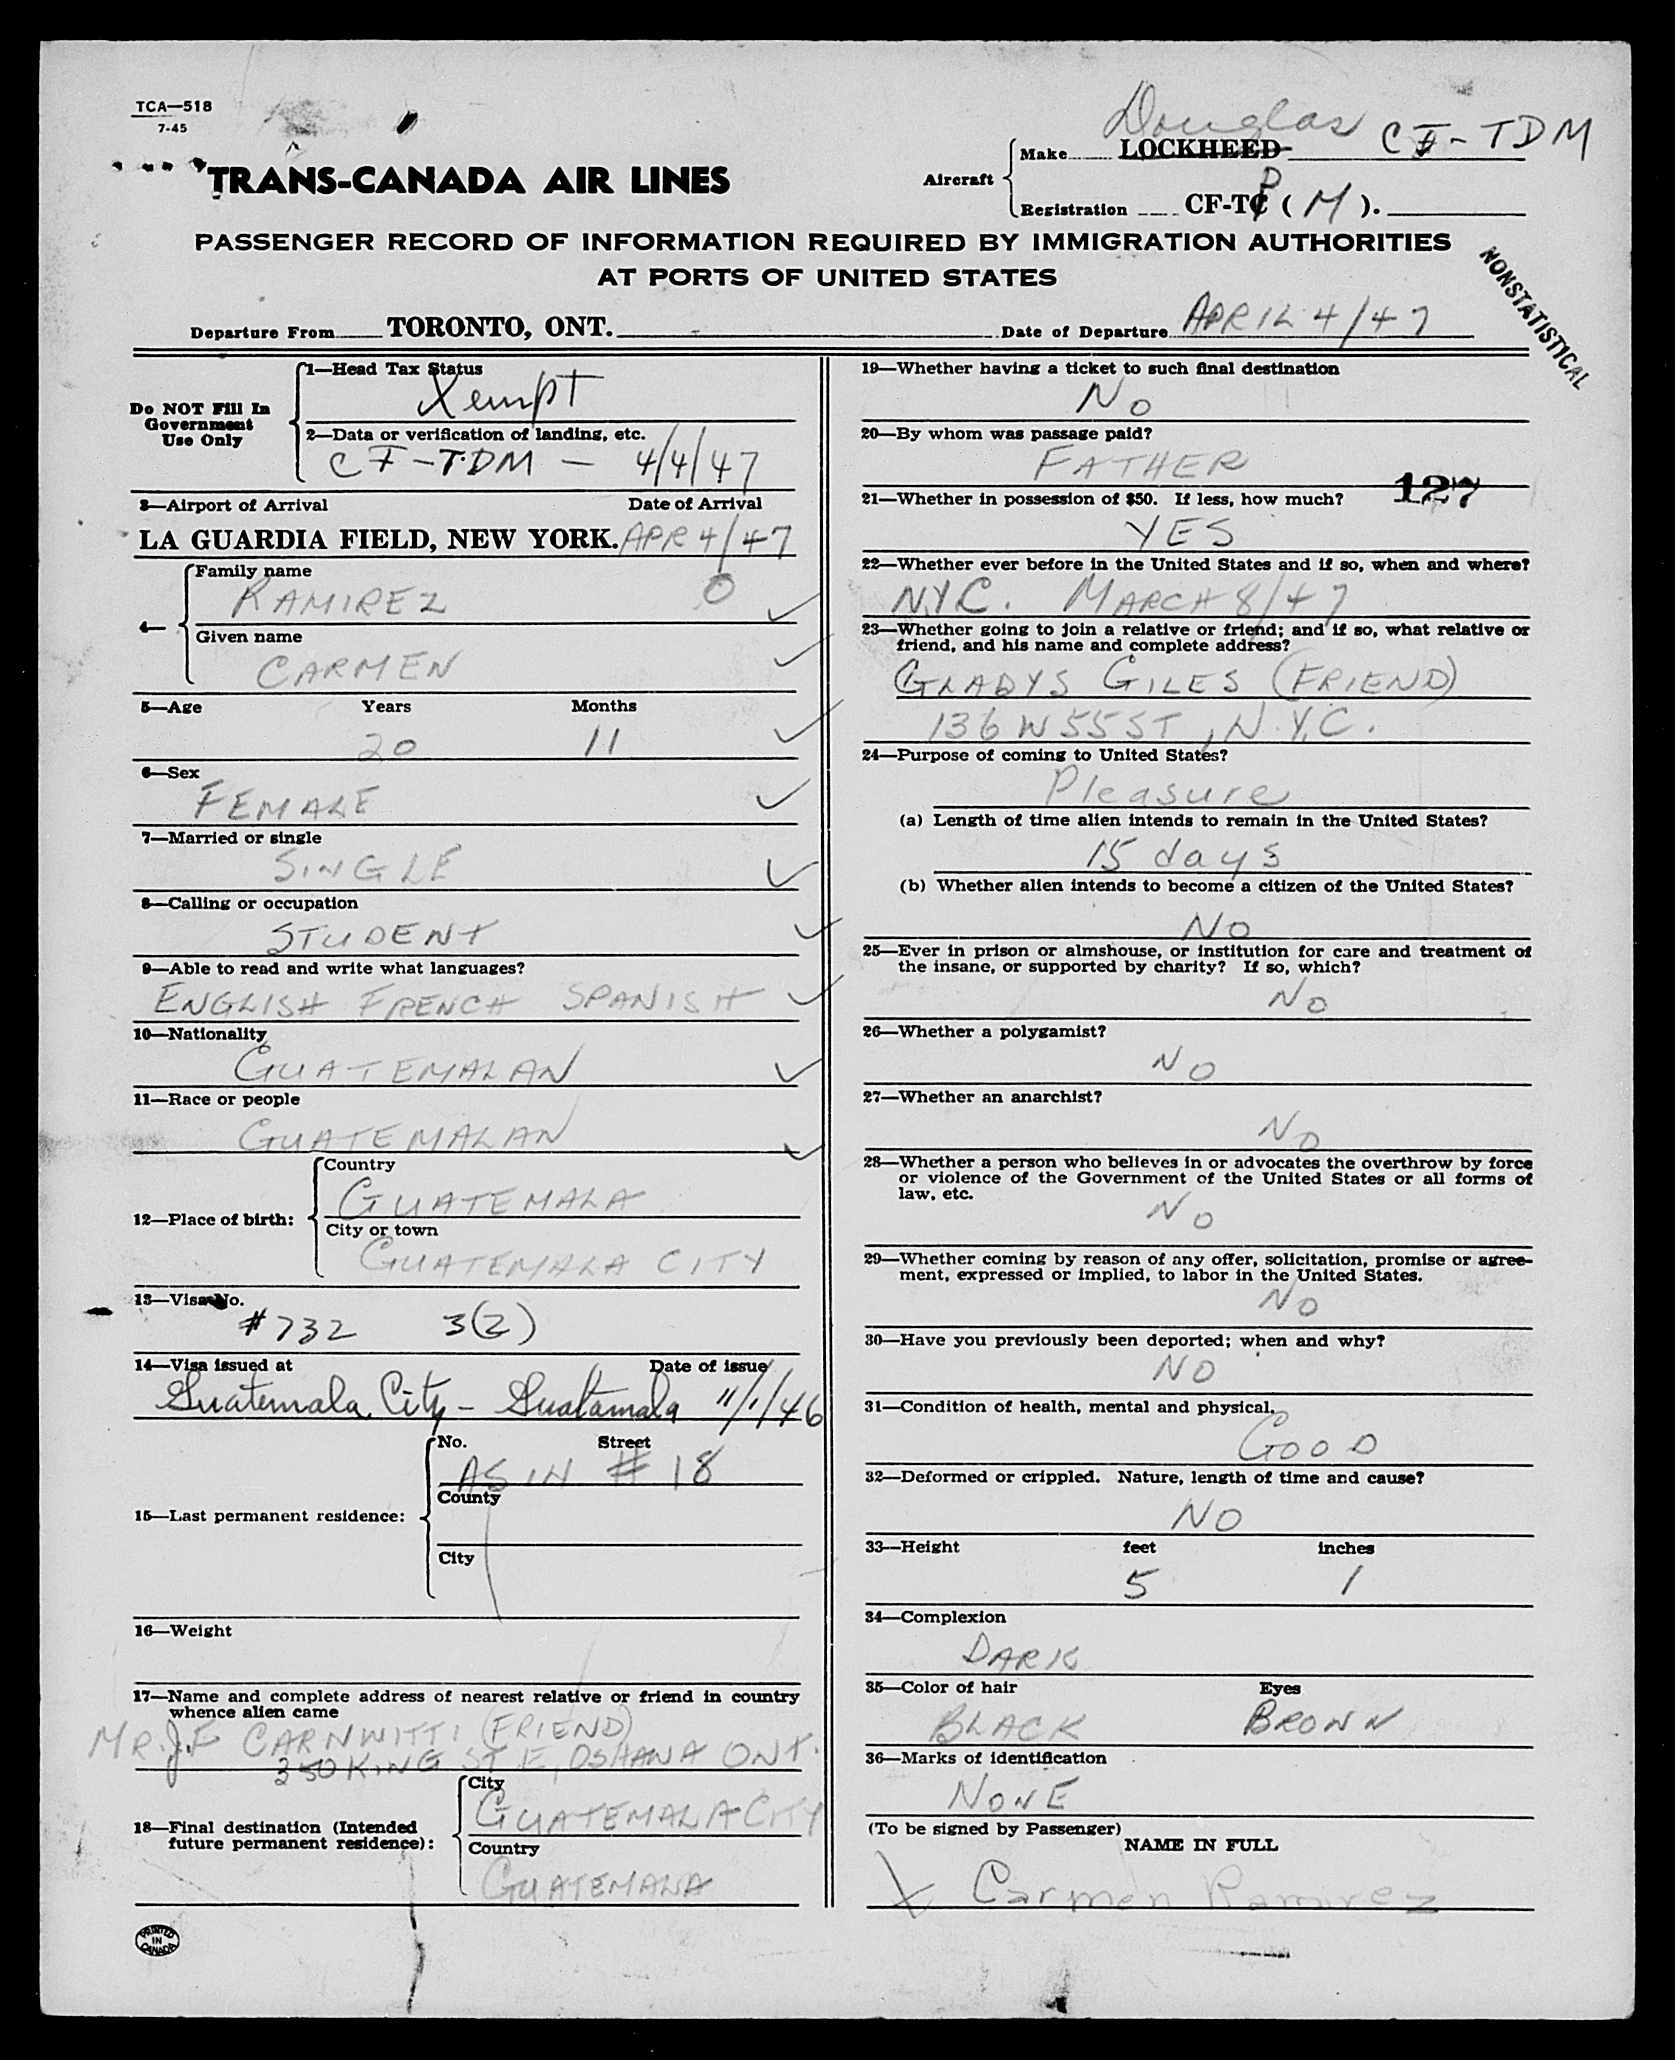 TCA—518
7-45
TRANS-CANADA AIR LINES
Aircraft
Make LOCKHEED Douglas CF-TDM
Registration CF-TC D ( M ).
PASSENGER RECORD OF INFORMATION REQUIRED BY IMMIGRATION AUTHORITIES
AT PORTS OF UNITED STATES
NONSTATISTICAL
Departure From TORONTO, ONT. Date of Departure APRIL 4/47
Do NOT Fill In
Government
Use Only
1—Head Tax Status
Xempt
2—Data or verification of landing, etc.
CF-TDM — 4/4/47
3—Airport of Arrival Date of Arrival
LA GUARDIA FIELD, NEW YORK. APR 4/47
4—
Family name
RAMIREZ 0
Given name
CARMEN
5—Age Years Months
20 11
6—Sex
FEMALE
7—Married or single
SINGLE
8—Calling or occupation
STUDENT
9—Able to read and write what languages?
ENGLISH FRENCH SPANISH
10—Nationality
GUATEMALAN
11—Race or people
GUATEMALAN
12—Place of birth:
Country
GUATEMALA
City or town
GUATEMALA CITY
13—Visa No.
#732 3(2)
14—Visa issued at Date of issue
Guatemala City - Guatamala 11/1/46
15—Last permanent residence:
No. Street
AS IN # 18
County
City
16—Weight
17—Name and complete address of nearest relative or friend in country
whence alien came
MR. J.F CARNWITTI (FRIEND)
350 KING ST E, OSHAWA ONT.
18—Final destination (Intended
future permanent residence):
City
GUATEMALA CITY
Country
GUATEMALA
PRINTED
IN
CANADA
19—Whether having a ticket to such final destination
NO
20—By whom was passage paid?
FATHER
127
21—Whether in possession of $50. If less, how much?
YES
22—Whether ever before in the United States and if so, when and where?
N.Y.C. MARCH 8/47
23—Whether going to join a relative or friend; and if so, what relative or
friend, and his name and complete address?
GLADYS GILES (FRIEND)
136 W 55 ST, N.Y.C.
24—Purpose of coming to United States?
Pleasure
(a) Length of time alien intends to remain in the United States?
15 days
(b) Whether alien intends to become a citizen of the United States?
NO
25—Ever in prison or almshouse, or institution for care and treatment of
the insane, or supported by charity? If so, which?
NO
26—Whether a polygamist?
NO
27—Whether an anarchist?
NO
28—Whether a person who believes in or advocates the overthrow by force
or violence of the Government of the United States or all forms of
law, etc.
NO
29—Whether coming by reason of any offer, solicitation, promise or agree-
ment, expressed or implied, to labor in the United States.
NO
30—Have you previously been deported; when and why?
NO
31—Condition of health, mental and physical.
GOOD
32—Deformed or crippled. Nature, length of time and cause?
NO
33—Height feet inches
5 1
34—Complexion
DARK
35—Color of hair Eyes
BLACK BROWN
36—Marks of identification
NONE
(To be signed by Passenger)
NAME IN FULL
X Carmen Ramirez